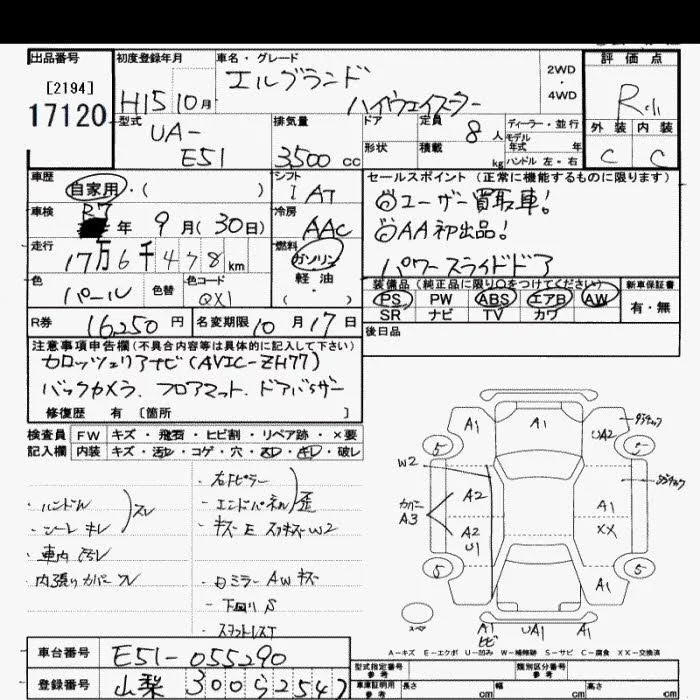 出品番号
[2194]
17120
初度登録年月
H15 10月
車名・グレード
エルグランド
ハイウェイスター
2WD
・
4WD
評価点
R
外装 内装
C C
型式
UA-
E51
排気量
3,500 cc
ドア
形状
定員
8人
積載
kg
ディーラー・並行
モデル
年式 年
ハンドル 左・右
車歴
自家用・( )
シフト
I AT
セールスポイント (正常に機能するものに限ります)
◎ユーザー買取車!
◎AA初出品!
パワースライドドア
車検
R7
年 9月(30日)
冷房
AAC
走行
17万6千478km
燃料
ガソリン
軽油
( ・ )
色
パール
色替
色コード
QX1
装備品 (純正品に限り○をつけてください)
PS PW ABS エアB AW
SR ナビ TV カワ
新車保証書
有・無
R券
16,250円
名変期限
10月17日
後日品
注意事項申告欄(不具合内容等は具体的に記入して下さい)
カロッツェリアナビ(AVIC-ZH77)
バックカメラ、フロアマット、ドアバイザー
修復歴 有 [箇所 ]
検査員
記入欄
FW キズ・飛石・ヒビ割・リペア跡・×要
内装 キズ・汚レ・コゲ・穴・スレ・キレ・破レ
・ハンドル
・シート キレ
スレ
・車内 汚レ
・内張りカバー
・右Fピラー
・エンドパネル
歪
・キズ E スリキズ W2
・ロミラー AW キズ
・下回り S
A1
A1
UA2
W2
A2
カバー
A3
A2
U1
A1
XX
A1
5
5
5
5
スペア
A1
UA1
A1
A-キズ E-エクボ U-凹み W-補修跡 S-サビ C-腐食 XX-交換済
車台番号
E51-055290
登録番号
山梨 300 ら 2547
型式指定番号
参考
類別区分番号
参考
車庫証明用
参考
長さ cm
幅 cm
高さ cm